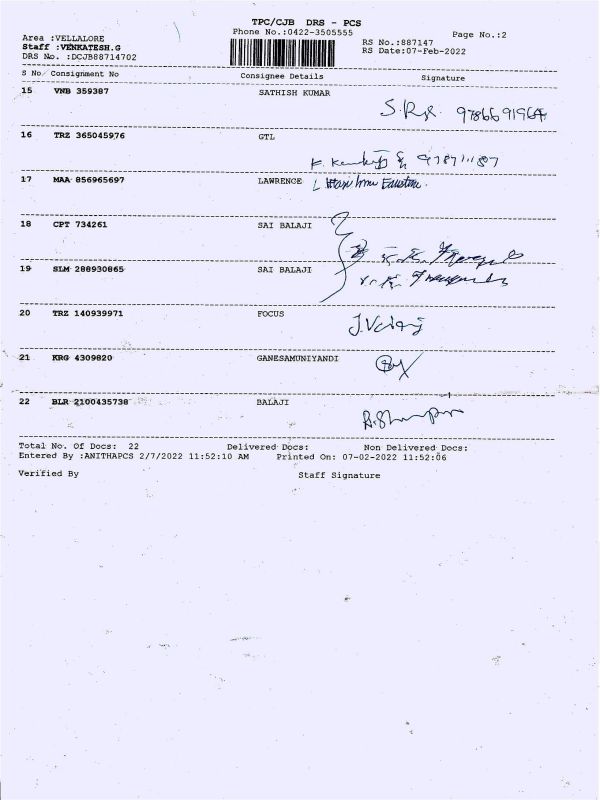 TPC/CJB DRS - PCS
Phone No.:0422-3505555
Page No.:2
Area :VELLALORE
RS No.:887147
Staff :VENKATESH.G
RS Date:07-Feb-2022
DRS No. :DCJB88714702
S No/ Consignment No Consignee Details Signature
15 VNB 359387 SATHISH KUMAR
16 TRZ 365045976 GTL
17 MAA 856965697 LAWRENCE
18 CPT 734261 SAI BALAJI
19 SLM 288930865 SAI BALAJI
20 TRZ 140939971 FOCUS
21 KRG 4309820 GANESAMUNIYANDI
22 BLR 2100435738 BALAJI
Total No. Of Docs: 22 Delivered Docs: Non Delivered Docs:
Entered By :ANITHAPCS 2/7/2022 11:52:10 AM Printed On: 07-02-2022 11:52:06
Verified By Staff Signature